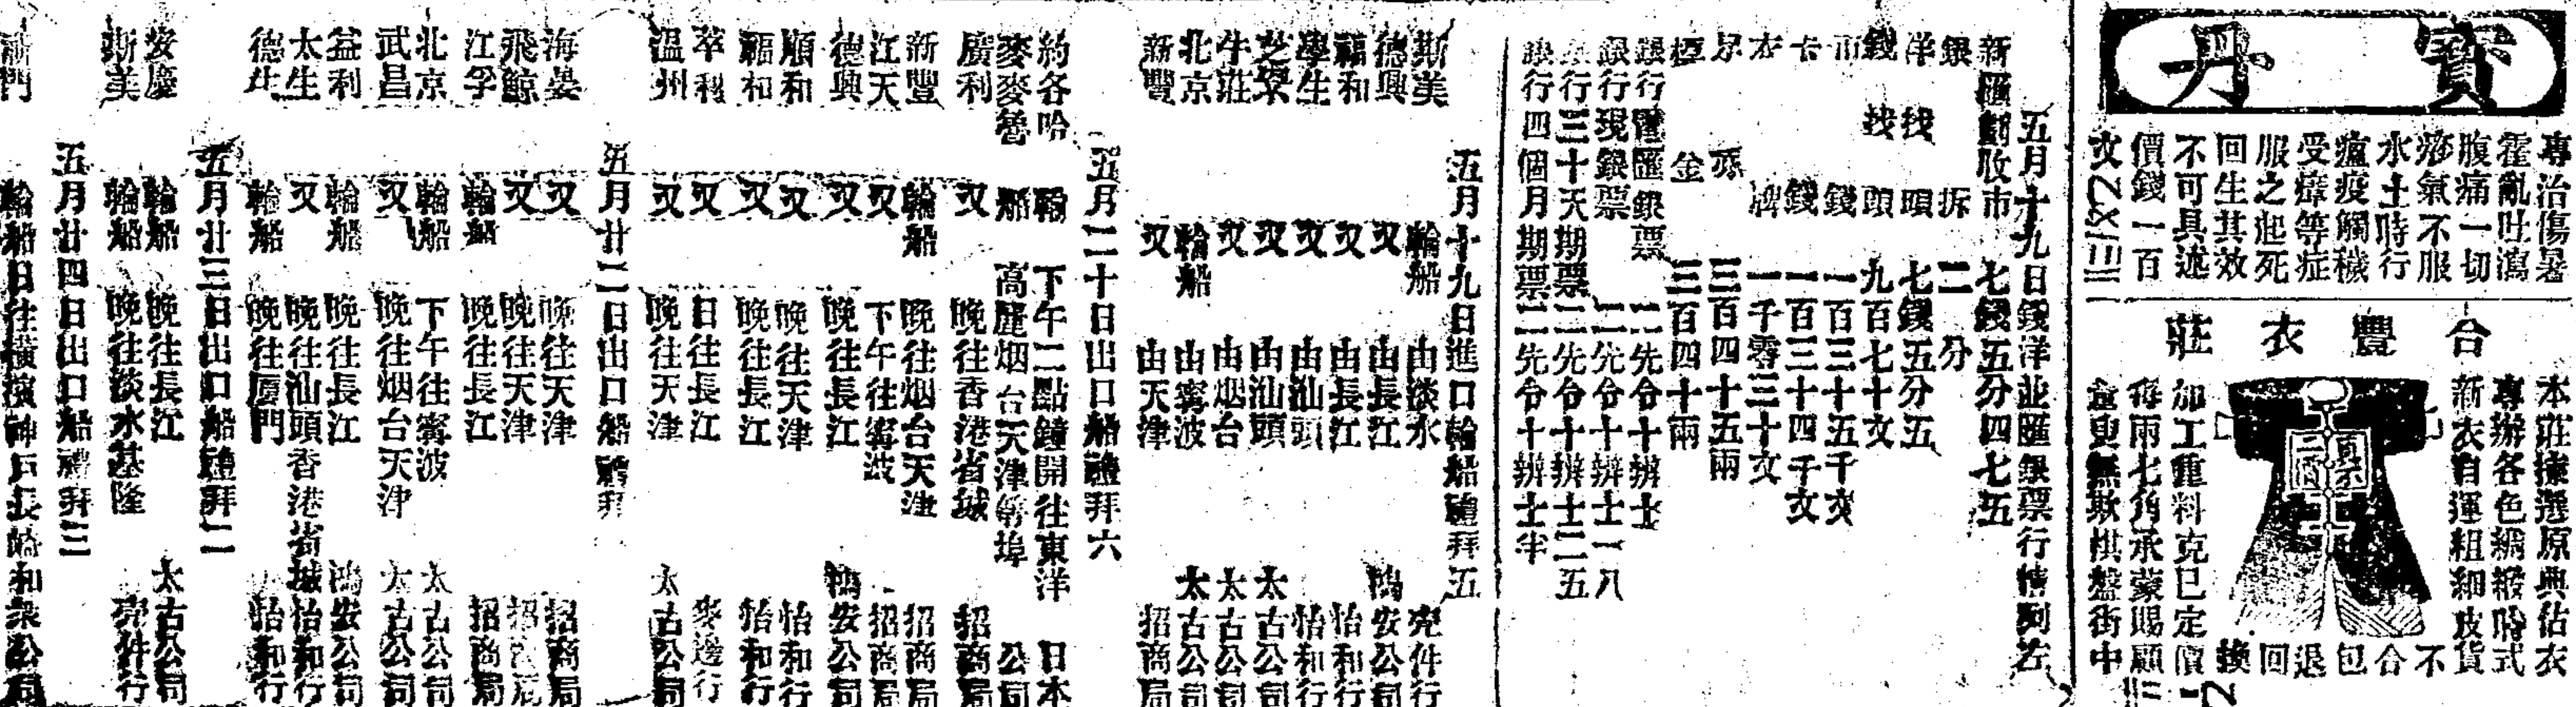 寶丹
專治傷暑
霍亂吐瀉
腹痛一切
痧氣不服
水土時行
瘟疫觸穢
受癖等症
服之起死
回生其效
不可具述
價錢一百
文
合豐衣莊
本莊揀選原典估衣
專辦各色綢緞時式
新衣自運粗細皮貨
不合包退回換
加工重料克已定價
每兩七角承蒙賜顧
童叟無欺棋盤街中
五月十九日錢洋並匯銀票行情列左
新匯劃收市 七錢五分四七五
銀拆 二分
洋找頭 七錢五分五
錢找頭 九百七十文
一百三十五千文
卡錢 一百三十四千文
衣牌 一千零三十文
三百四十五兩
金 三百四十兩
銀行匯匯銀票 二先令十辨士
銀行現銀票 二先令十辨士一八
行三十天期票 二先令十辨士二五
銀行四個月期票 二先令十辨士半
五月十九日進口輪船禮拜五
斯美 輪船 由淡水 兗件行
德興 又 由長江 鴻安公司
福和 又 由長江 怡和行
學生 又 由汕頭 怡和行
芝罘 又 由汕頭 太古公司
牛莊 又 由烟台 太古公司
北京 輪船 由寗波 太古公司
新豐 又 由天津 招商局
五月二十日出口船禮拜六
約各哈 輪 下午二點鐘開往東洋 日本
麥麥魯 船 高麗烟台天津等埠 公司
廣利 又 晚往香港省城 招商局
新豐 輪船 晚往烟台天津 招商局
江天 又 下午往寗波 招商局
德興 又 晚往長江 鴻安公司
順和 又 晚往天津 怡和行
福和 又 晚往長江 怡和行
萃利 又 日往長江 麥邊行
溫州 又 晚往天津 太古公司
五月廿二日出口船禮拜
海晏 又 晚往天津 招商局
飛鯨 又 晚往天津 招商局
江孚 輪船 晚往長江 招商局
北京 輪船 下午往寗波 太古公司
武昌 又 晚往烟台天津 太古公司
益利 輪船 晚往長江 鴻安公司
太生 又 晚往汕頭香港省城 怡和行
德生 輪船 晚往廈門 怡和行
五月廿三日出口船禮拜二
安慶 輪船 晚往長江 太古公司
斯美 輪船 晚往淡水基隆 兗件行
五月廿四日出口船禮拜三
門 輪船 日往橫濱神戶長崎 和眾公司